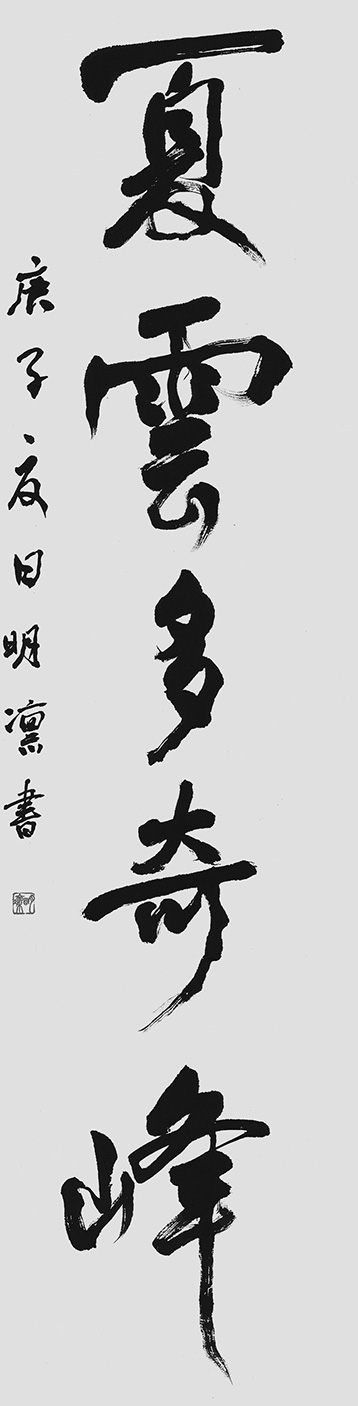 夏雲多奇峰
庚子夏日明凛書